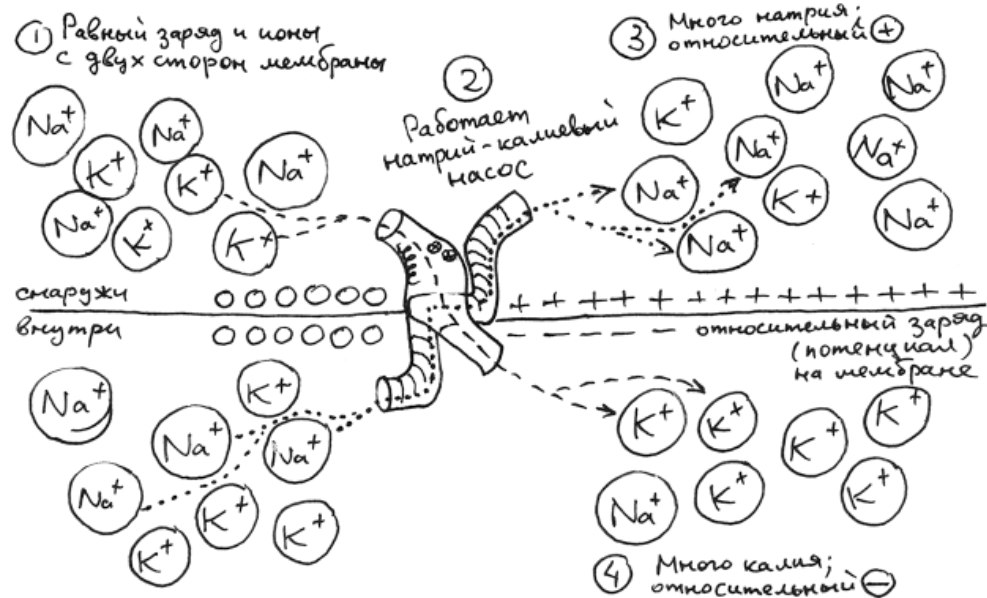 ① Равный заряд и ионы
с двух сторон мембраны
②
Работает
натрий-калиевый
насос
③ Много натрия;
относительный ⊕
Na⁺
Na⁺
K⁺
K⁺
Na⁺
Na⁺
K⁺
K⁺
K⁺
Na⁺
Na⁺
Na⁺
Na⁺
Na⁺
K⁺
Na⁺
Na⁺
снаружи
внутри
+ + + + + + + + + + + + +
— — — — — — относительный заряд
(потенциал)
на мембране
Na⁺
K⁺
Na⁺
Na⁺
Na⁺
K⁺
K⁺
K⁺
K⁺
K⁺
K⁺
K⁺
Na⁺
K⁺
K⁺
④ Много калия;
относительный ⊖